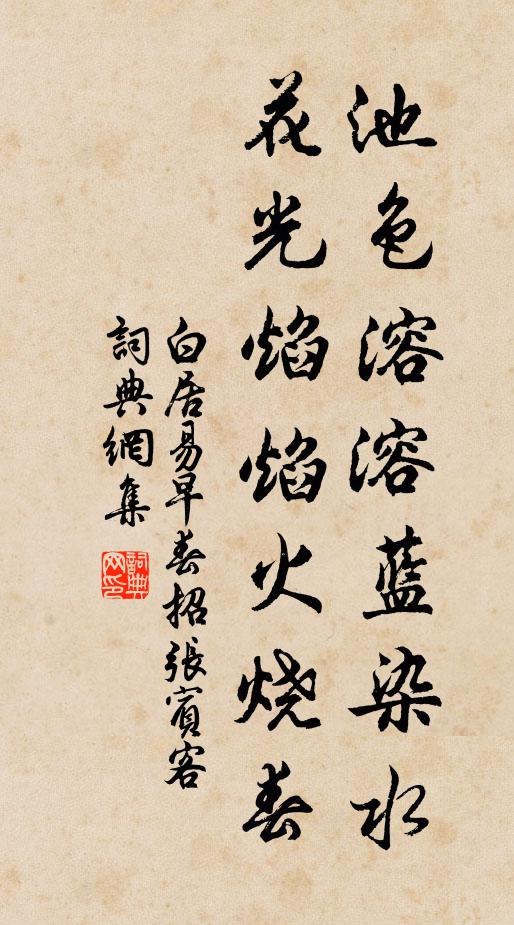 池色溶溶藍染水
花光焰焰火烧春
白居易早春招張賓客
詞典網集
詞典網印